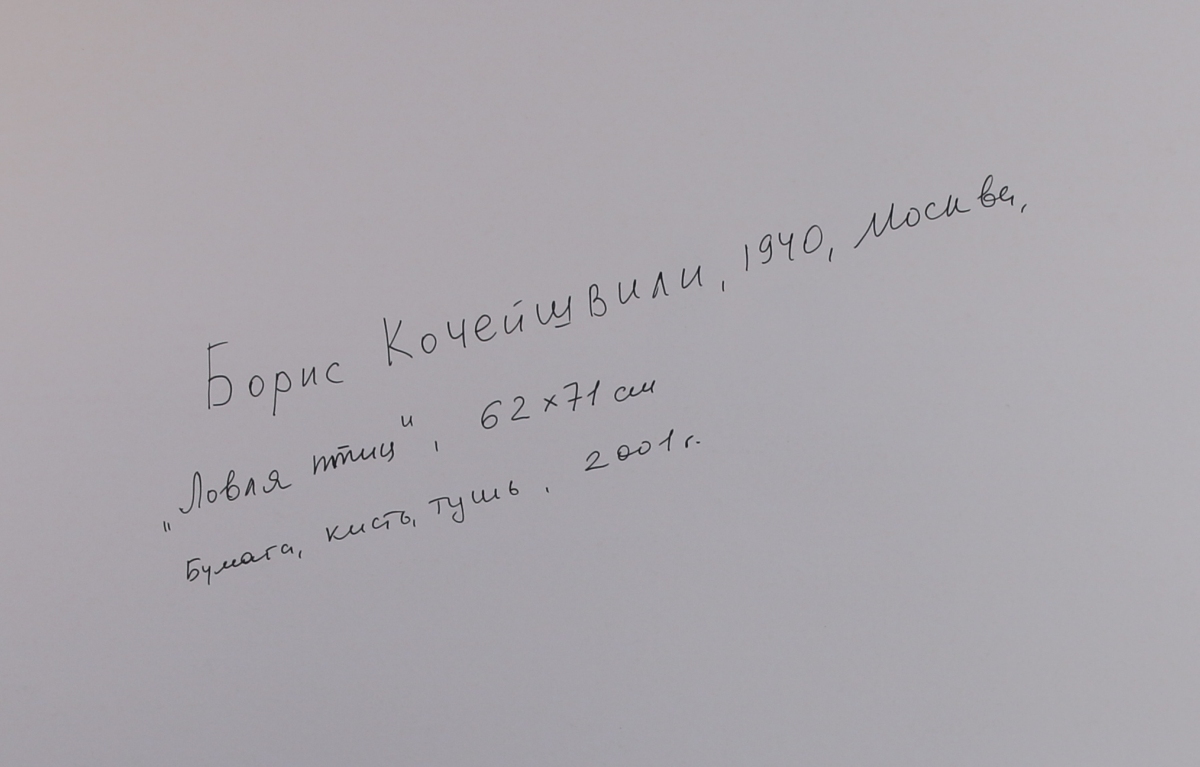 Борис Кочейшвили, 1940, Москва,
„Ловля птиц", 62×71 см
Бумага, кисть, тушь, 2001 г.